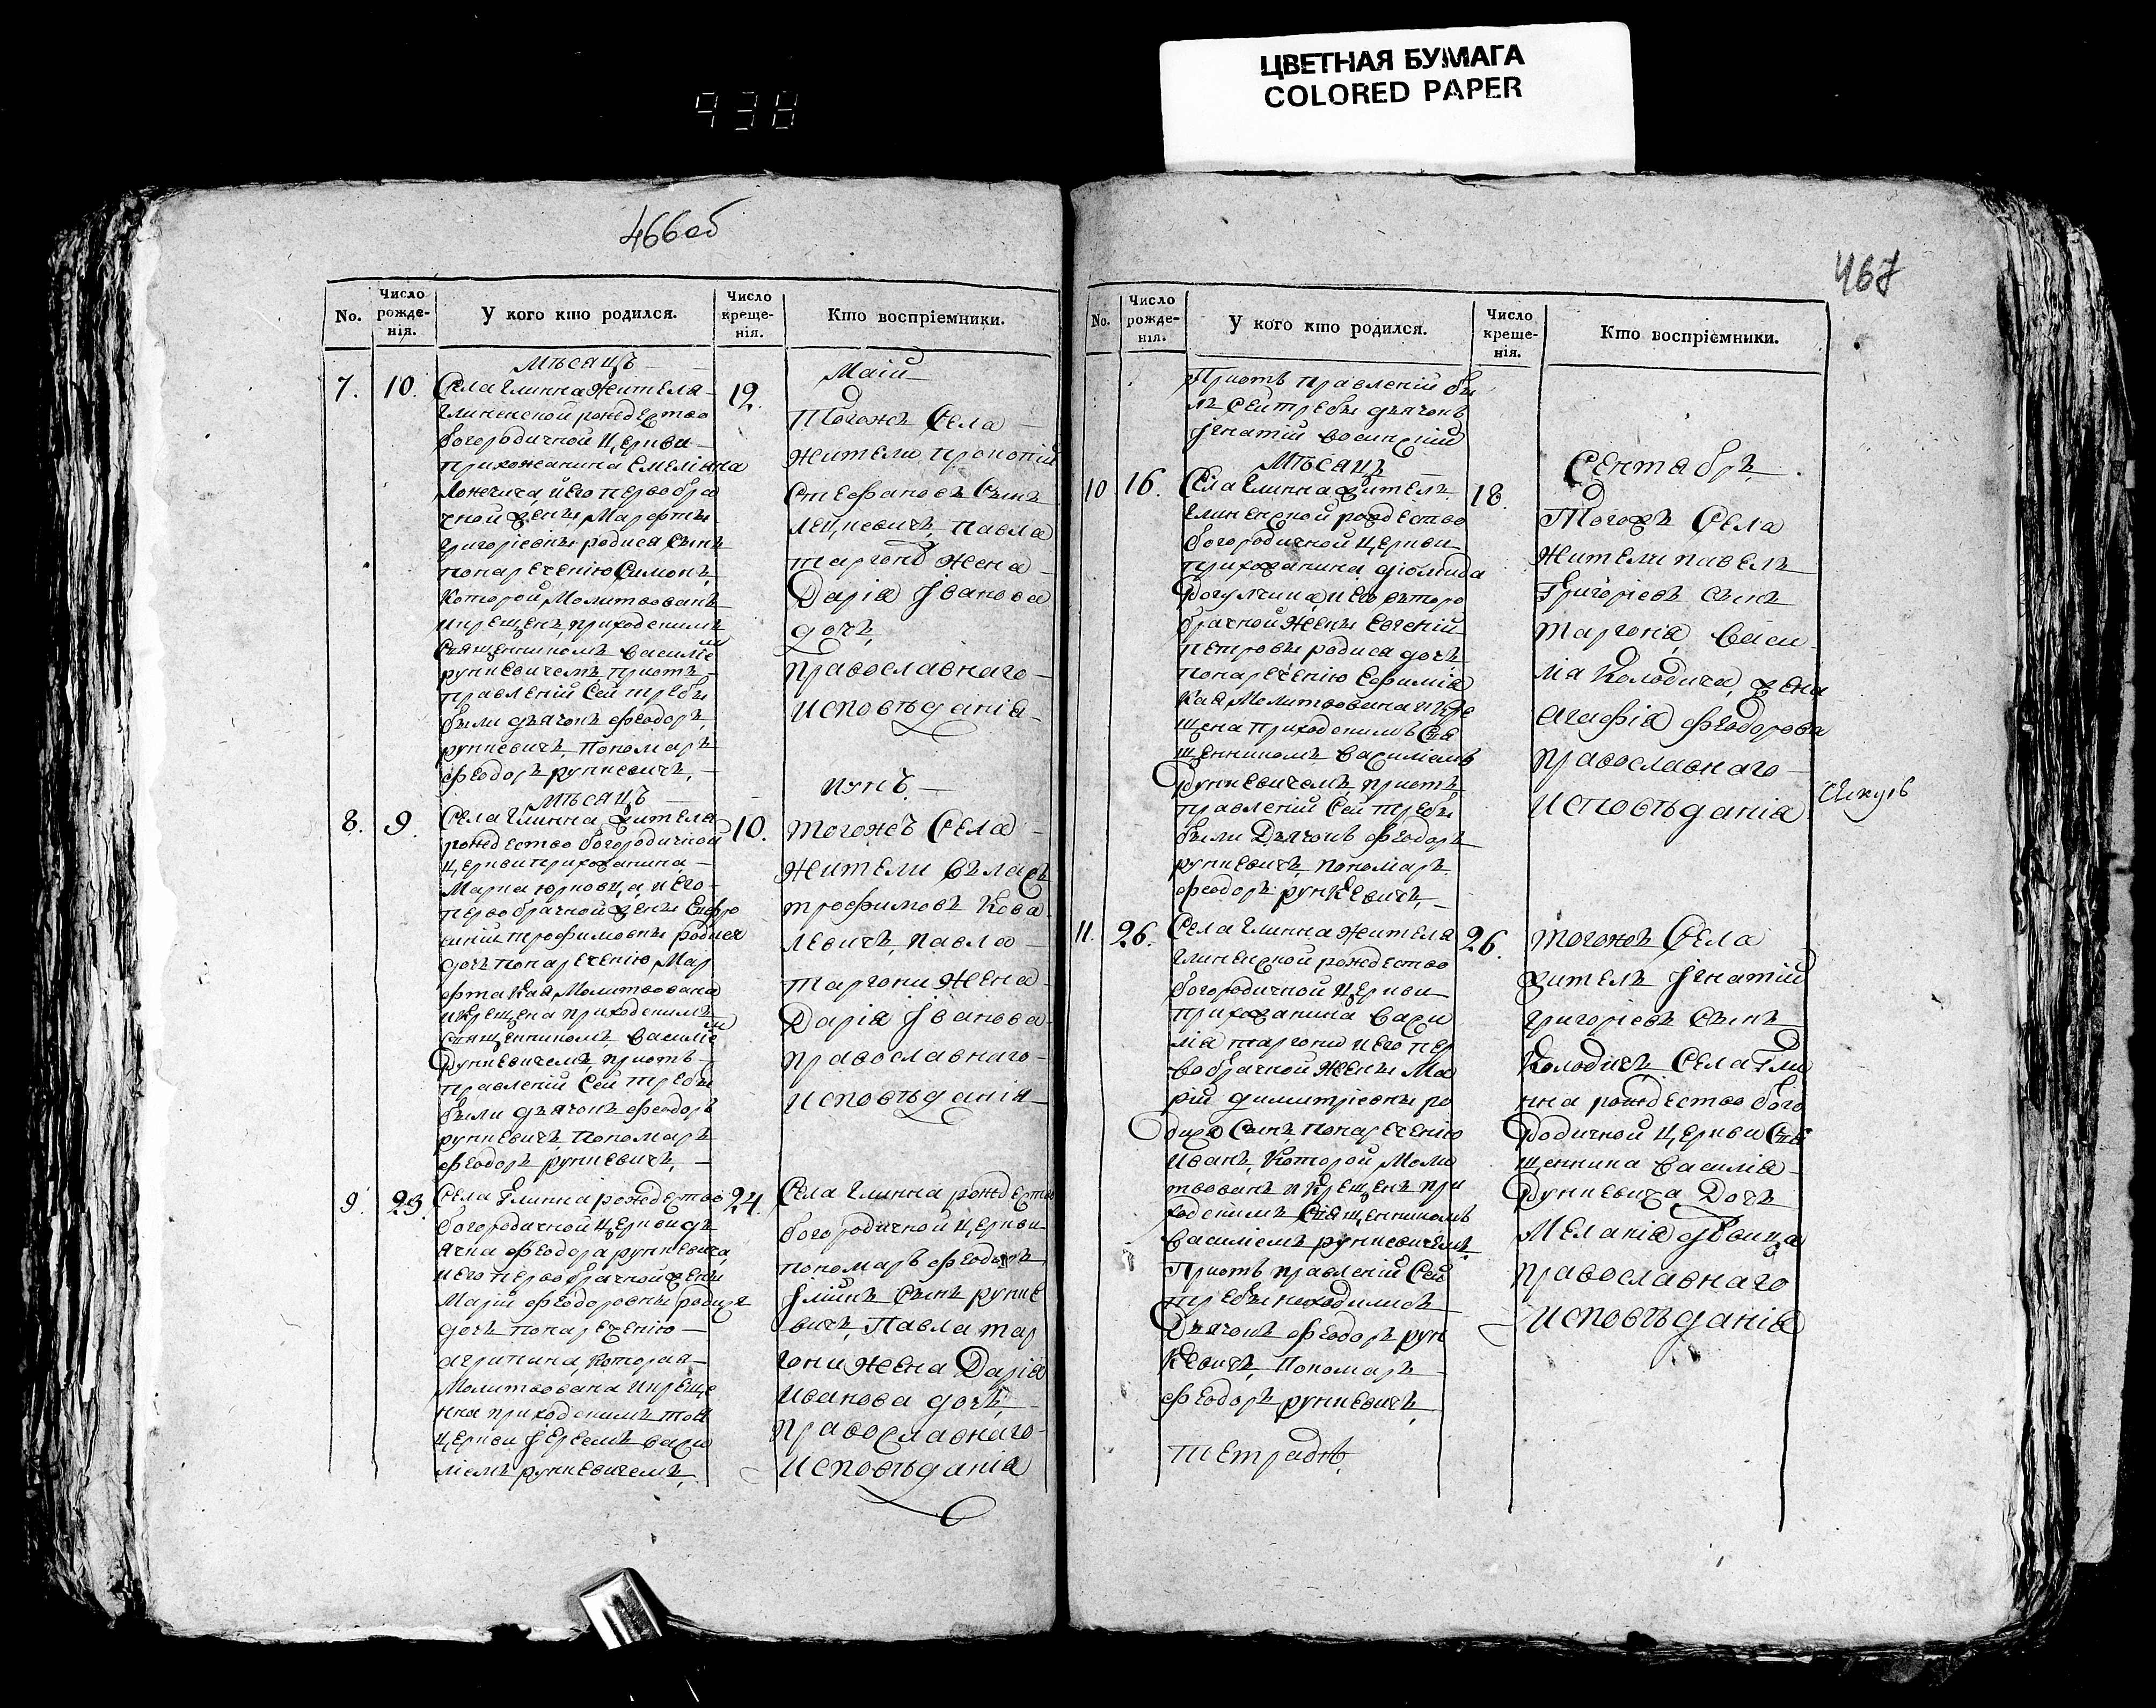 ЦВЕТНАЯ БУМАГА
COLORED PAPER
938
466об
No.
Число рожде-нія.
У кого кто родился.
Число креще-нія.
Кто воспріемники.
Мѣсяцъ
Маій
7. 10. 12.
Села Глинна Жителя
Глиненской рождество
богородичной Церкви
прихожанина Емеліяна
и его первобра
чной жены Марфы
григоріевны родися Сынъ
понаречению Симонъ
Которой Молитвованъ
икрещенъ приходскимъ
Священникомъ Василіе
мъ
рункевичемъ приотъ
правленій Сей требы
были дьячокъ феодоръ
рункевичъ Пономарь
феодоръ рункевичъ
Тогожъ Села
жители прокопій
Стефановъ Сынъ
павла
таргонѣ Жена
Дарія Іванова
дочь
православнаго
исповѣданія
Мѣсяцъ
иунь
8. 9. 10.
Села Глинна жителя
рождество богородичной
Церкви прихожанина
Марка юрковца и его
первобрачной жены Евфро
синій трофимовны родися
дочь понаречению Мар
фта Кая Молитвована
и Крещена приходскимъ
священникомъ Василіе
мъ
Рункевичемъ приотъ
правленій Сей требы
были дьячокъ феодоръ
рункевичъ Пономарь
феодоръ рункевичъ
тогожъ Села
жители Власъ
трофимовъ Кова
левичъ павла
таргони Жена
Дарія Іванова
православнаго
исповѣданія
9. 23. 24.
Села Глинна рождество
богородичной Церкви дь
ячка феодора рункевича
и его первобрачной жены
Маріи феодоровны родися
дочь понаречению
агрипина, Которая
Молитвована икреще
нна приходскимъ той
Церкви Іереемъ васи
ліемъ рункевичемъ
Села Глинна рождество
богородичной Церкви
пономарь феодоръ
Іліинъ Сынъ рунке
вичъ, Павла тар
гони Жена Дарія
Иванова дочь
православнаго
исповѣданія
467
No.
Число рожде-нія.
У кого кто родился.
Число креще-нія.
Кто воспріемники.
Приотъ правленій бы
лъ Сей требы дьячокъ
Ігнатій
Мѣсяцъ
Сентябрь
10 16. 18.
Села Глинна житель
Глиненской рождество
богородичной Церкви
прихожанина діомида
и его второ
брачной Жены Евгеній
петровны родися дочь
понаречению Ефимія
Кая Молитвована и Кре
щена приходскимъ Свя
щенникомъ Василіемъ
Рункевичемъ приотъ
правленій Сей требы
были Дьячокъ феодоръ
рункевичъ пономарь
феодоръ рункевичъ
Тогожъ Села
Жители павелъ
Григоріевъ Сынъ
таргоня, Васи
лія Колодича жена
агафія феодорова
православнаго
исповѣданія
11. 26. 26.
Села Глинна жителя
Глиненской рождество
богородичной Церкви
прихожанина Васи
лія таргони и его пер
вобрачной Жены Ма
рій димитріевны ро
дися Сынъ понаречению
Иванъ, Которой Моли
твованъ и Крещенъ при
ходскимъ Священникомъ
Василіемъ рункевичемъ
Приотъ правленій Сей
требы находились
Дьячокъ феодоръ рун
Кевичъ, Пономарь
феодоръ рункевичъ
тетрадь
тогожъ Села
житель Ігнатій
григоріевъ Сынъ
Колодичъ Села Гли
нна рождество бого
Родичной Церкви Свя
щенника Василія
Рункевича Дочь
Меланія девица
православнаго
исповѣданія